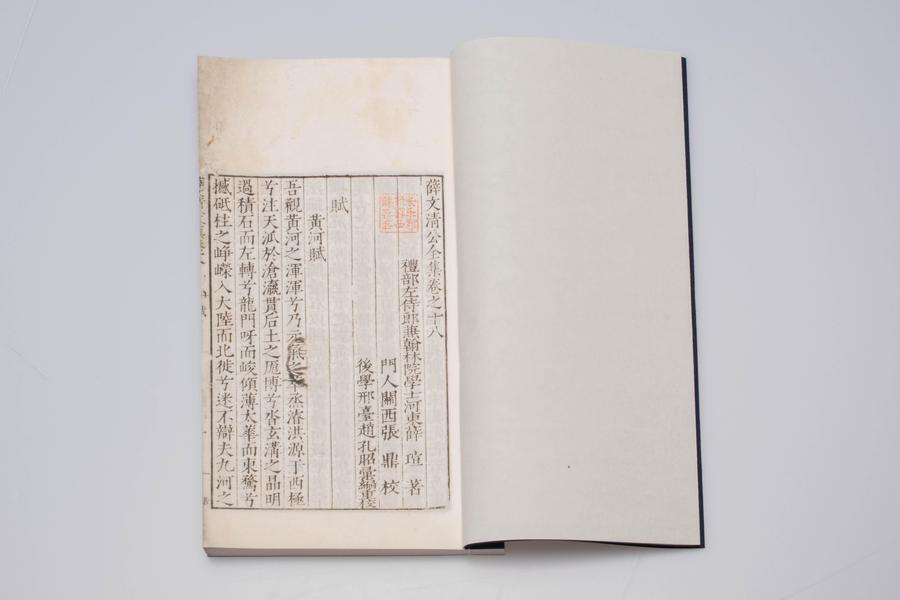 薛文清公全集卷之十八
禮部左侍郎兼翰林院學士河東薛 瑄 著
門人關西張 鼎 校
後學邢臺趙孔昭彙編重校
賦
黃河賦
吾觀黃河之渾渾兮乃元氣之 烝濬洪源于西極
兮注天派於滄瀛貫后土之厖博兮沓玄溝之晶明
過積石而左轉兮龍門呀而峻傾薄太華而東騖兮
撼砥柱之崢嶸入大陸而北徙兮迷不辯夫九河之